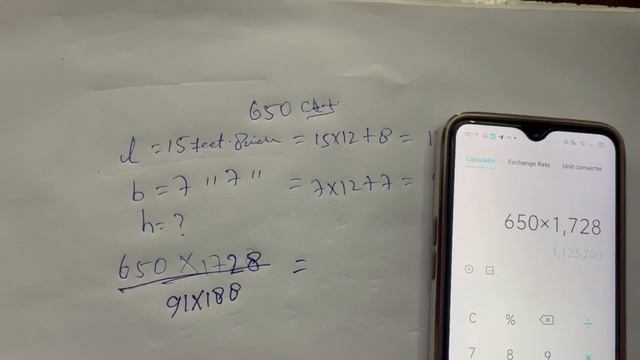 650
l = 15 feet 8 inch = 15x12+8 = 1
b = 7 " 7 " = 7x12+7 =
h = ?
650 x 1728 =
91x188
Calculator Exchange Rate Unit converter
650×1,728
1,123,200
C % ÷
7 8 9 ×